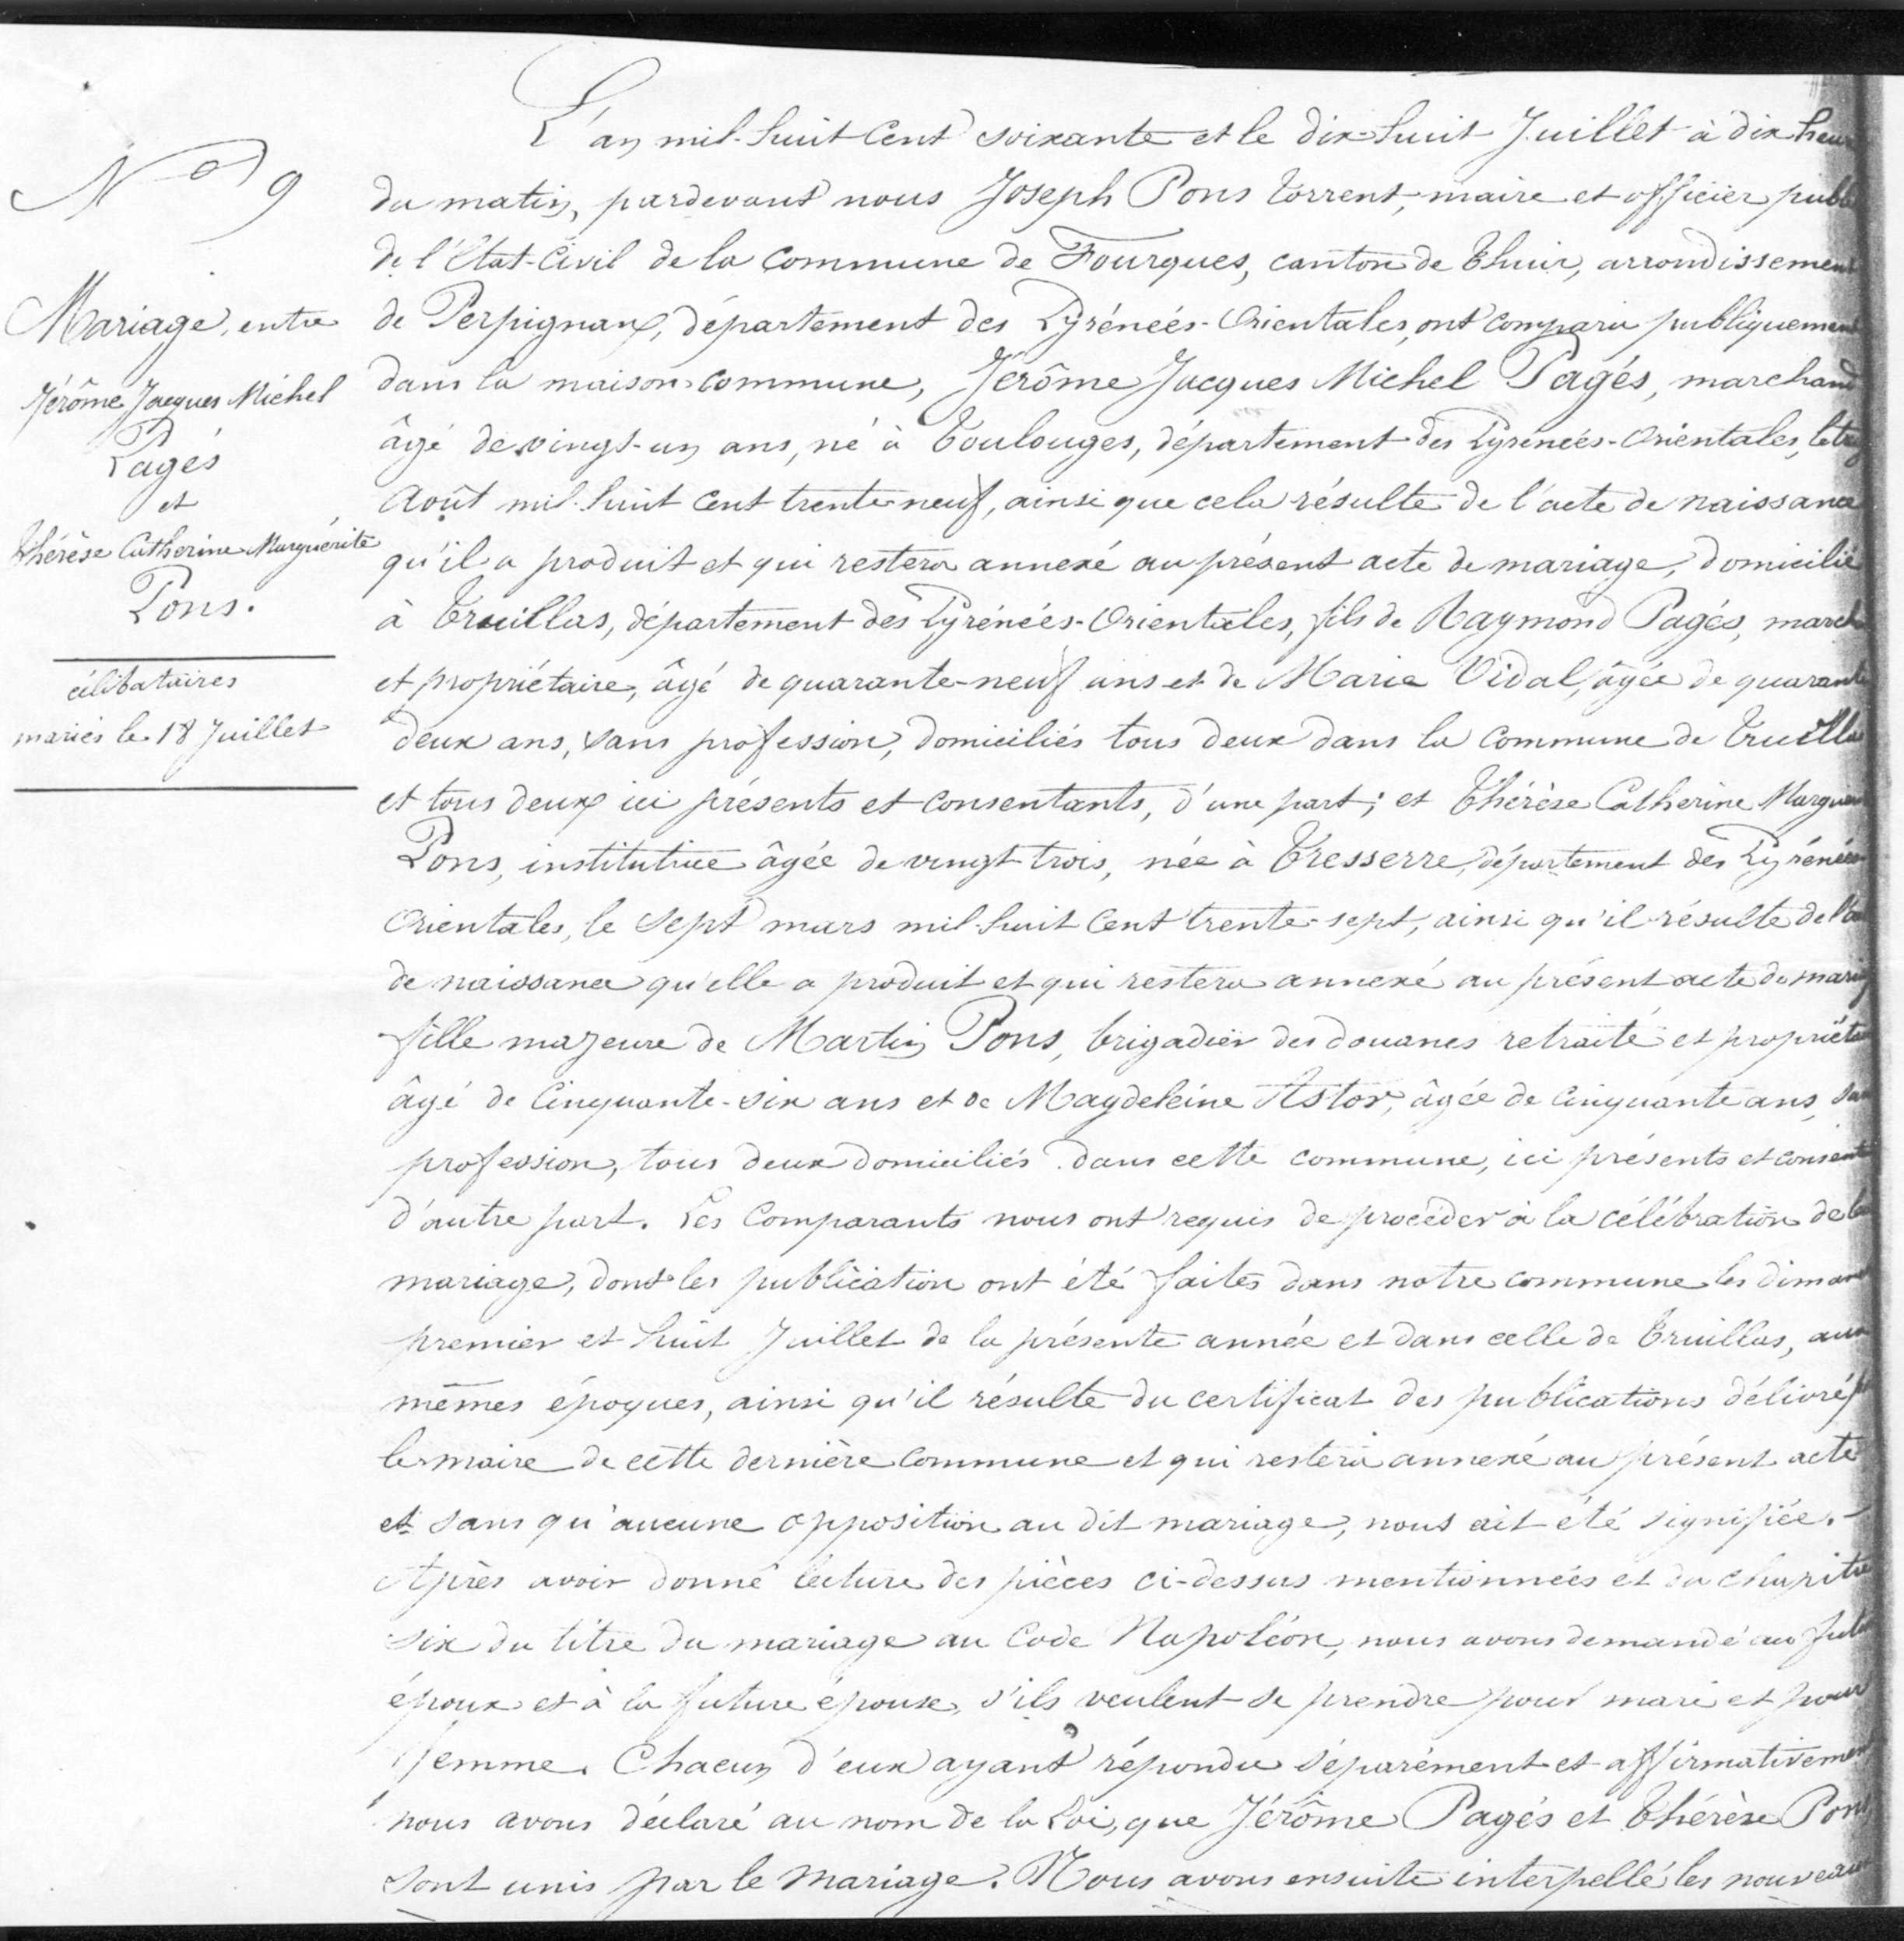 N° 9
Mariage, entre
Jérôme Jacques Michel
Pagés
et
Thérèse Catherine Marguérite
Pons.
célibataires
mariés le 18 Juillet
L'an mil-huit Cent soixante et le dix huit Juillet à dix
du matin, pardevant nous Joseph Pons torrent, maire et officier
de l'État-Civil de la Commune de Fourques, canton de Thuir, arrondissement
de Perpignan, département des Pyrénées-Orientales, ont comparu publiquement
dans la maison commune, Jérôme Jacques Michel Pagés, marchand
âgé de vingt-un ans, né à Toulouges, département des Pyrénées-Orientales,
Août mil-huit cent trente neuf, ainsi que cela résulte de l'acte de naissance
qu'il a produit et qui restera annexé au présent acte de mariage, domicilié
à Truillas, département des Pyrénées-Orientales, fils de Raymond Pagés,
et propriétaire, âgé de quarante-neuf ans et de Marie Vidal, âgée de quarante
deux ans, sans profession, domiciliés tous deux dans la Commune de Truillas
et tous deux ici présents et consentants, d'une part; et Thérèse Catherine
Pons, institutrice âgée de vingt trois, née à Tresserre, département des Pyrénées
Orientales, le Sept mars mil-huit Cent trente-sept, ainsi qu'il résulte de
de naissance qu'elle a produit et qui restera annexé au présent acte de
fille majeure de Martin Pons, brigadier des douanes retraité et
âgé de Cinquante-six ans et de Magdeleine Astor, âgée de Cinquante ans,
profession, tous deux domiciliés dans cette commune, ici présents et
d'autre part. Les Comparants nous ont requis de procéder à la célébration de
mariage, dont les publication ont été faites dans notre commune les
premier et huit Juillet de la présente année et dans celle de Truillas, aux
mêmes époques, ainsi qu'il résulte du certificat des publications délivré
le maire de cette dernière Commune et qui restera annexé au présent acte
et sans qu'aucune opposition au dit mariage, nous ait été signifiée.-
Après avoir donné lecture des pièces ci-dessus mentionnées et du chapitre
six du titre du mariage au Code Napoléon, nous avons demandé au
époux et à la future épouse, s'ils veulent se prendre pour mari et pour
femme. Chacun d'eux ayant répondu séparément et affirmativement
nous avons déclaré au nom de la Loi, que Jérôme Pagés et Thérèse Pons
sont unis par le mariage. Nous avons ensuite interpellé les nouveaux